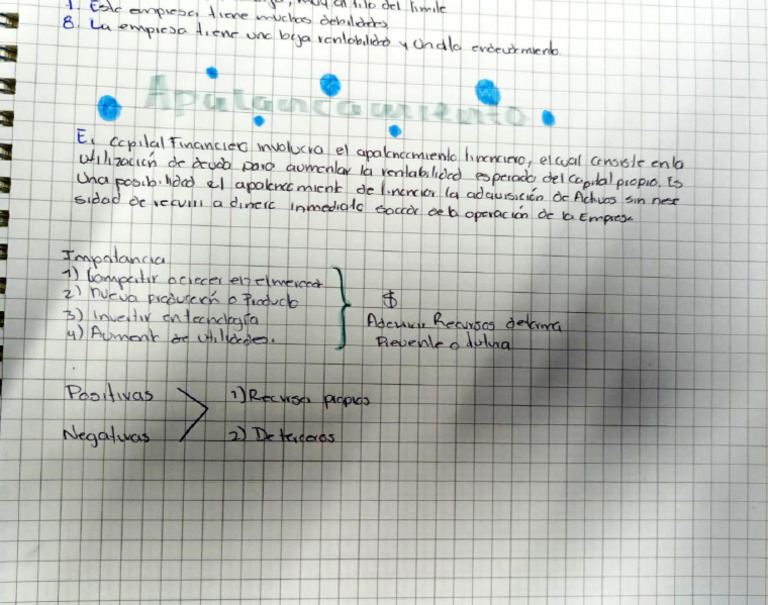 del limite
7. Este empresa tiene muchas debilidades
8. La empresa tiene una baja rentabilidad y un alto endeudamiento.
Apalancamiento
El capital Financiero involucra el apalancamiento financiero, el cual consiste en la
utilización de deuda para aumentar la rentabilidad esperada del capital propio. Es
una posibilidad el apalancamient de financiar la adquisición de Activos sin nece
sidad de recurrir a dinero inmediato de la operación de la Empresa
Impalancia
1) Competir o crecer en el mercado
2) nueva producción o Producto
3) Invertir en tecnología
4) Aument de utilidades.
$
Adquirir Recursos de forma
Presente o futura
Positivas
Negativas
1) Recurso propios
2) De terceros